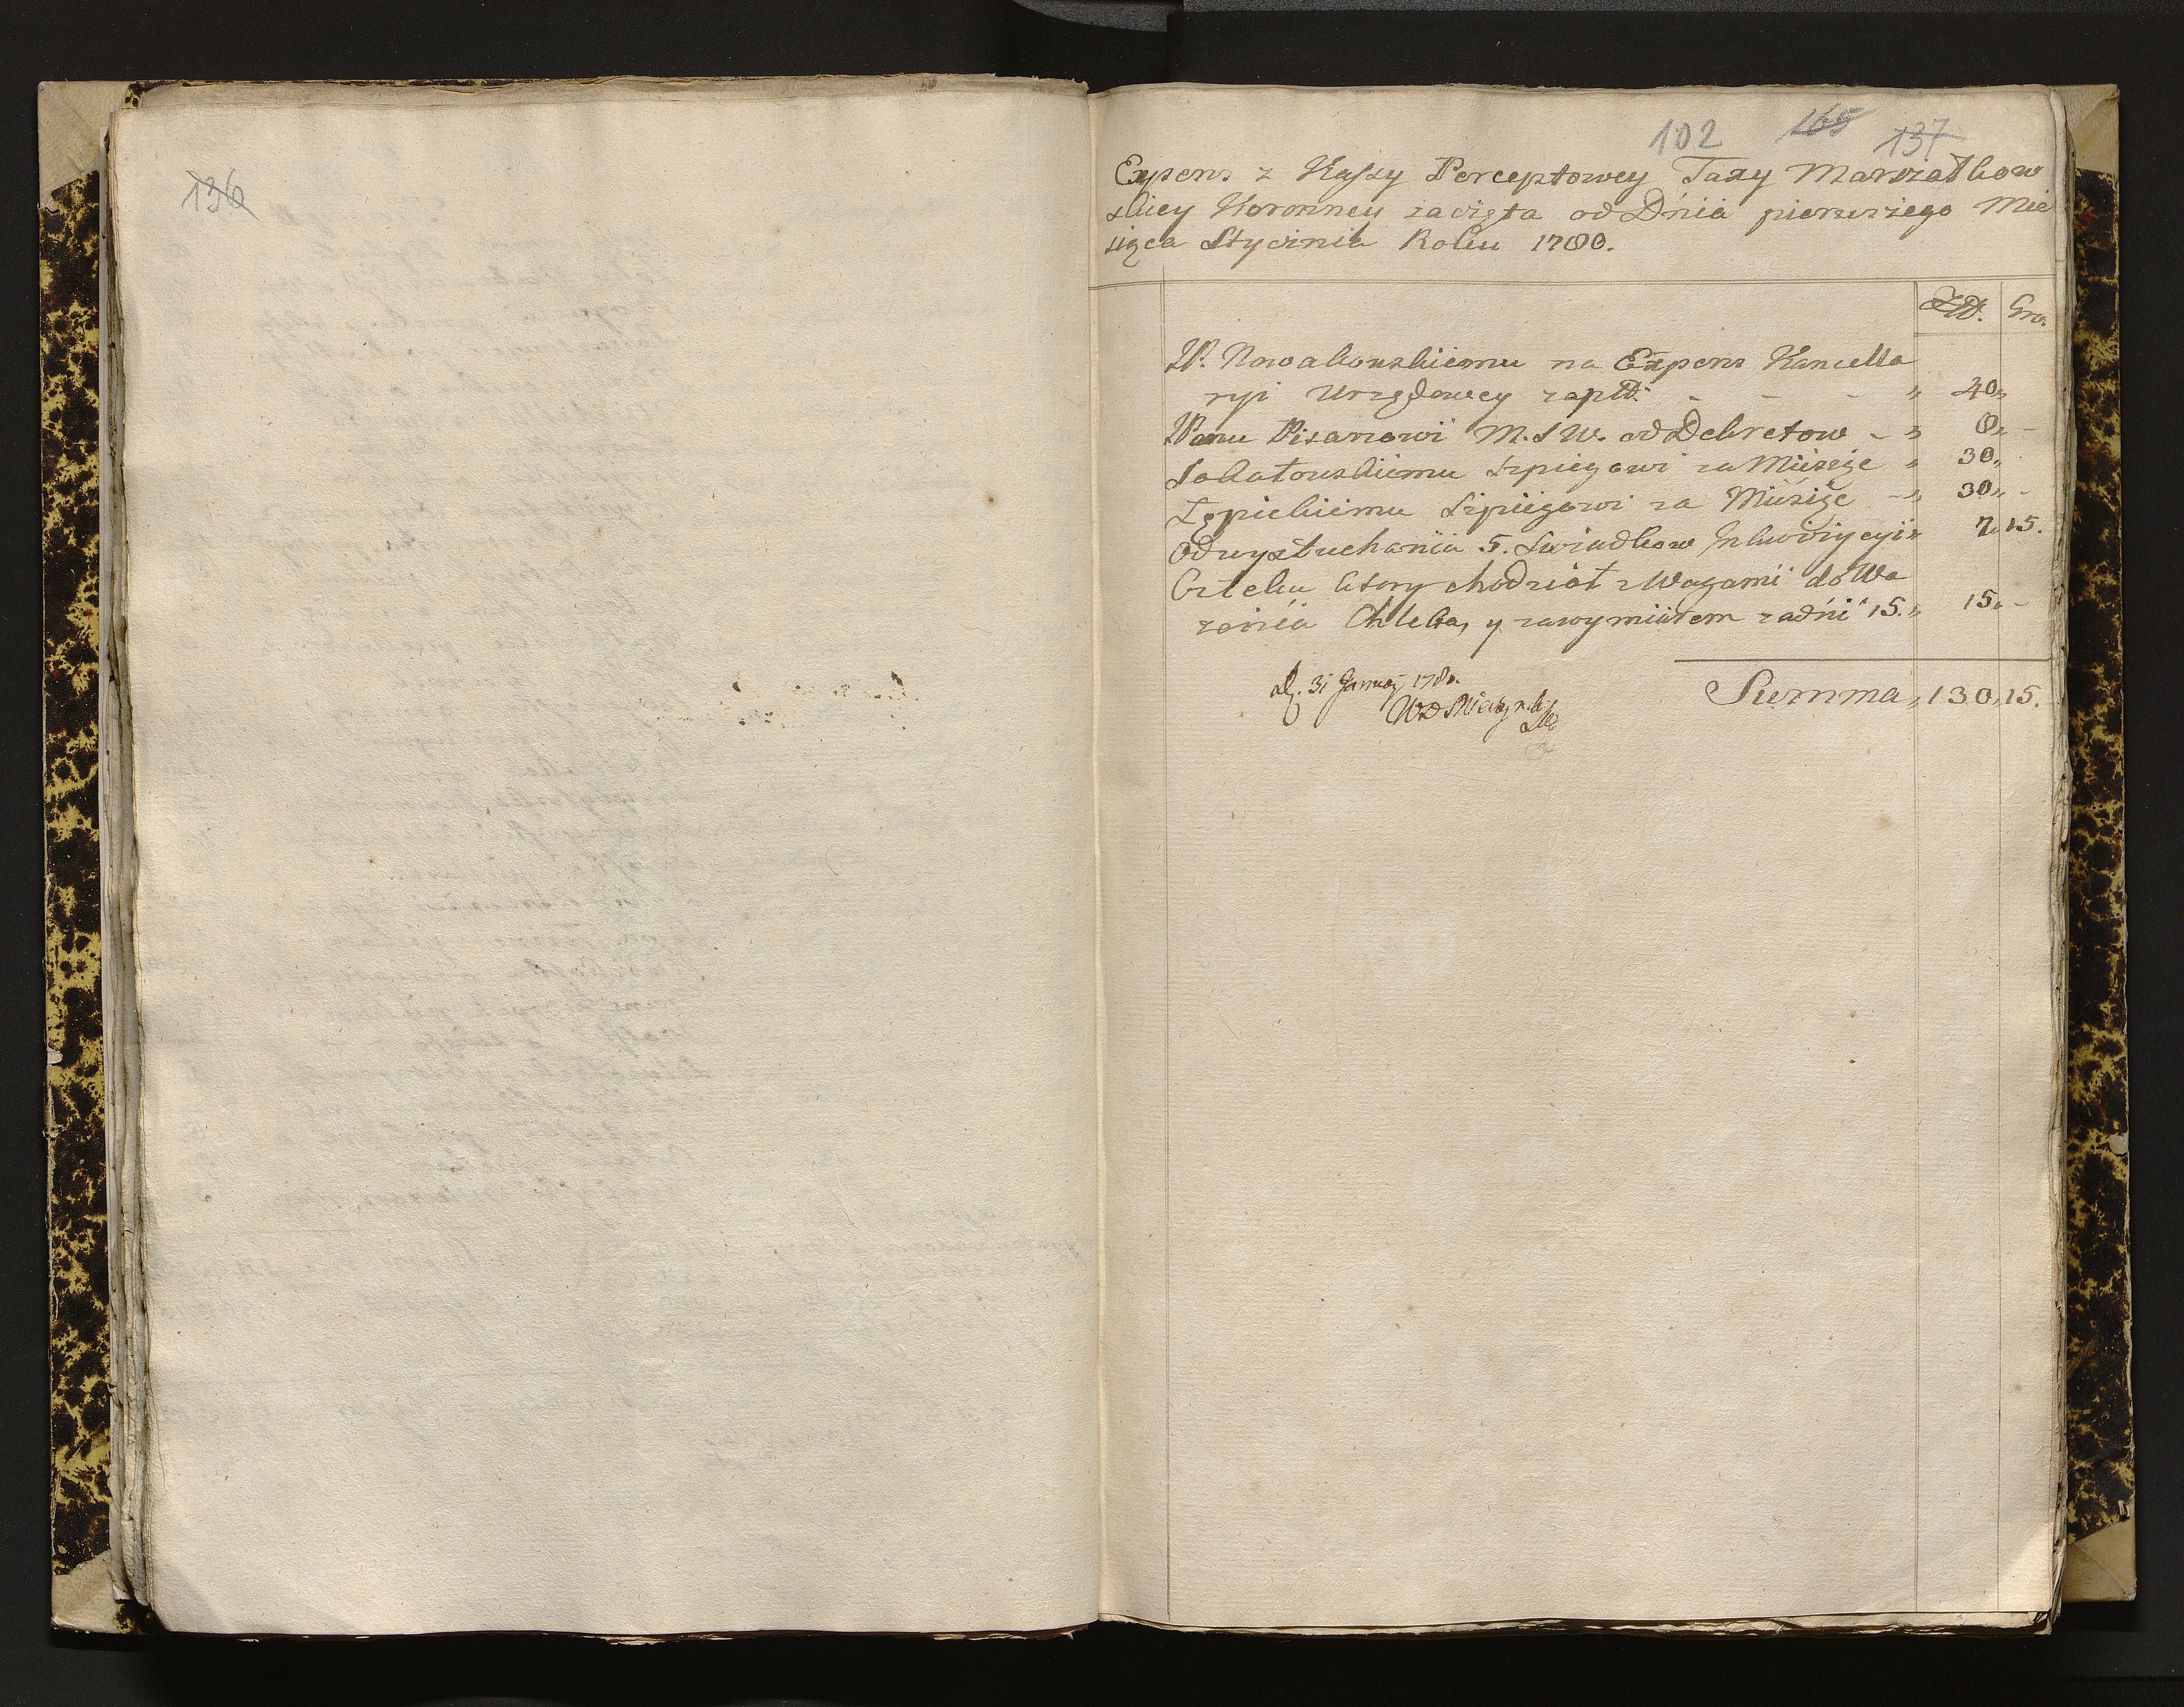 136
102 165 137
Expens z Kassy Perceptowey Taxy Marszałkow
skiey Koronney zaczęta od Dnia pierwszego Mie
siąca Stycznia Roku 1780.
Złł. Gro.
W. Nowakowskiemu na Expens Kancella
ryi Urzędowey zapłł. - - - „ 40„
Panu Pisarzowi M. S W. od Dekretow - „ 8„ -
Sokołowskiemu Szpiegowi za Miesiąc „ 30„
Łępickiemu Szpiegowi za Miesiąc - „ 30„ -
Od wysłuchania 5. Swiadkow Inkwizycyi „ 7„ 15.
Czteku ktory chodził z Wagami do Wa
żenia Chleba, y zawymiałem za dni 15. „ 15„ -
Summa „ 130„ 15.
d. 31 January 1780.